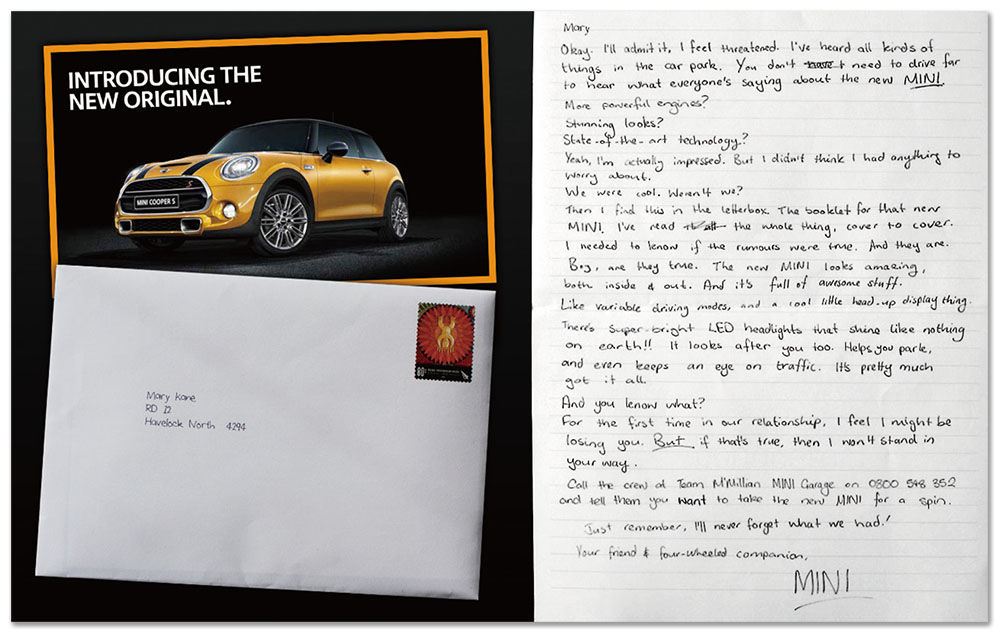 INTRODUCING THE
NEW ORIGINAL.
S
MINI COOPER S
80c
Mary Kane
RD 12
Havelock North 4294
Mary
Okay. I'll admit it, I feel threatened. I've heard all kinds of
things in the car park. You don't have t need to drive far
to hear what everyone's saying about the new MINI.
More powerful engines?
Stunning looks?
State-of-the-art technology?
Yeah, I'm actually impressed. But I didn't think I had anything to
worry about.
We were cool. Weren't we?
Then I find this in the letterbox. The booklet for that new
MINI. I've read it all the whole thing, cover to cover.
I needed to know if the rumours were true. And they are.
Boy, are they true. The new MINI looks amazing,
both inside & out. And it's full of awesome stuff.
Like variable driving modes, and a cool little head-up display thing.
There's super-bright LED headlights that shine like nothing
on earth!! It looks after you too. Helps you park,
and even keeps an eye on traffic. It's pretty much
got it all.
And you know what?
For the first time in our relationship, I feel I might be
losing you. But if that's true, then I won't stand in
your way.
Call the crew at Team McMillan MINI Garage on 0800 548 352
and tell them you want to take the new MINI for a spin.
Just remember, I'll never forget what we had!
Your friend & four-wheeled companion,
MINI